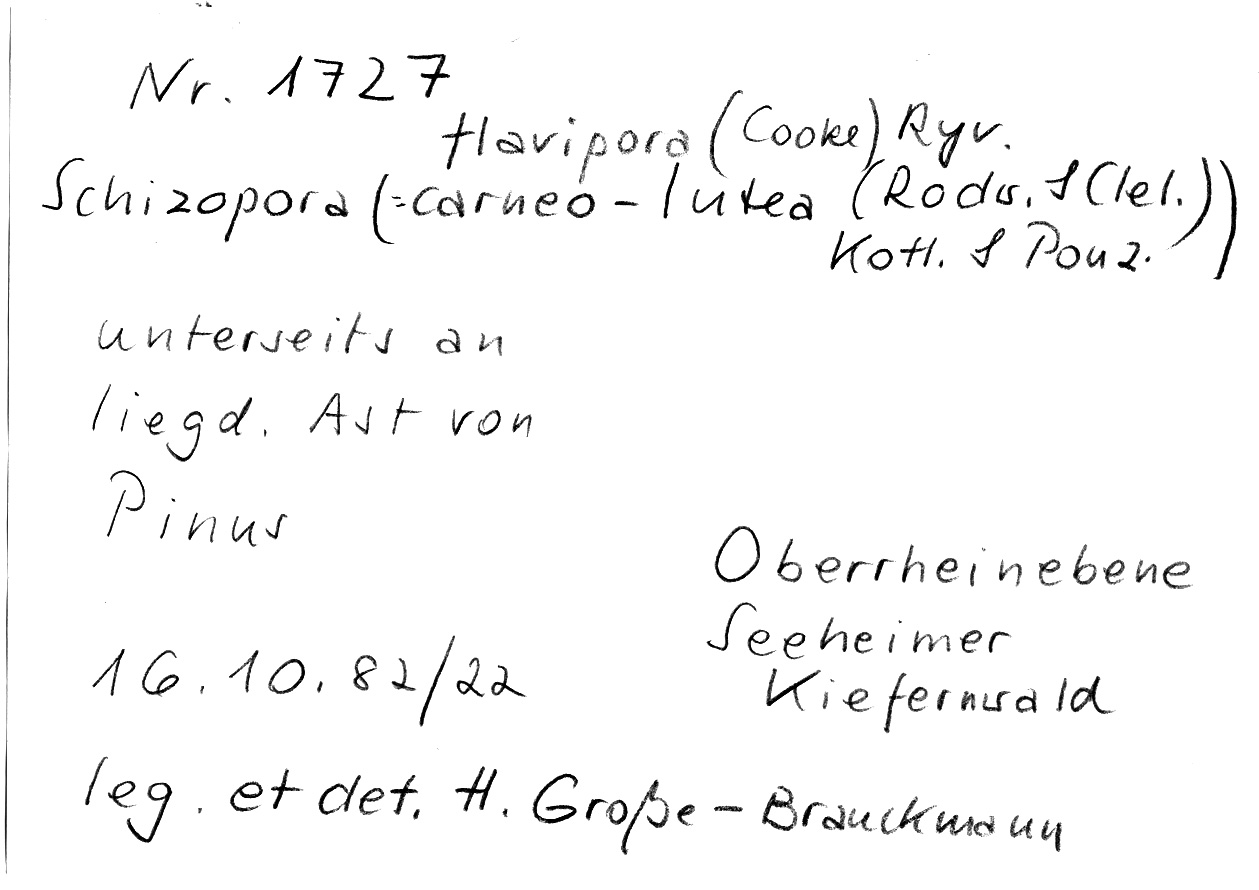 Nr. 1727
flavipora (Cooke) Ryv.
Schizopora (=carneo-lutea (Rodw. & Clel.))
Kotl. & Pouz.
unterseits an
liegd. Ast von
Pinus
Oberrheinebene
Seeheimer
Kiefernwald
16.10.82/22
leg. et det. H. Große-Brauckmann